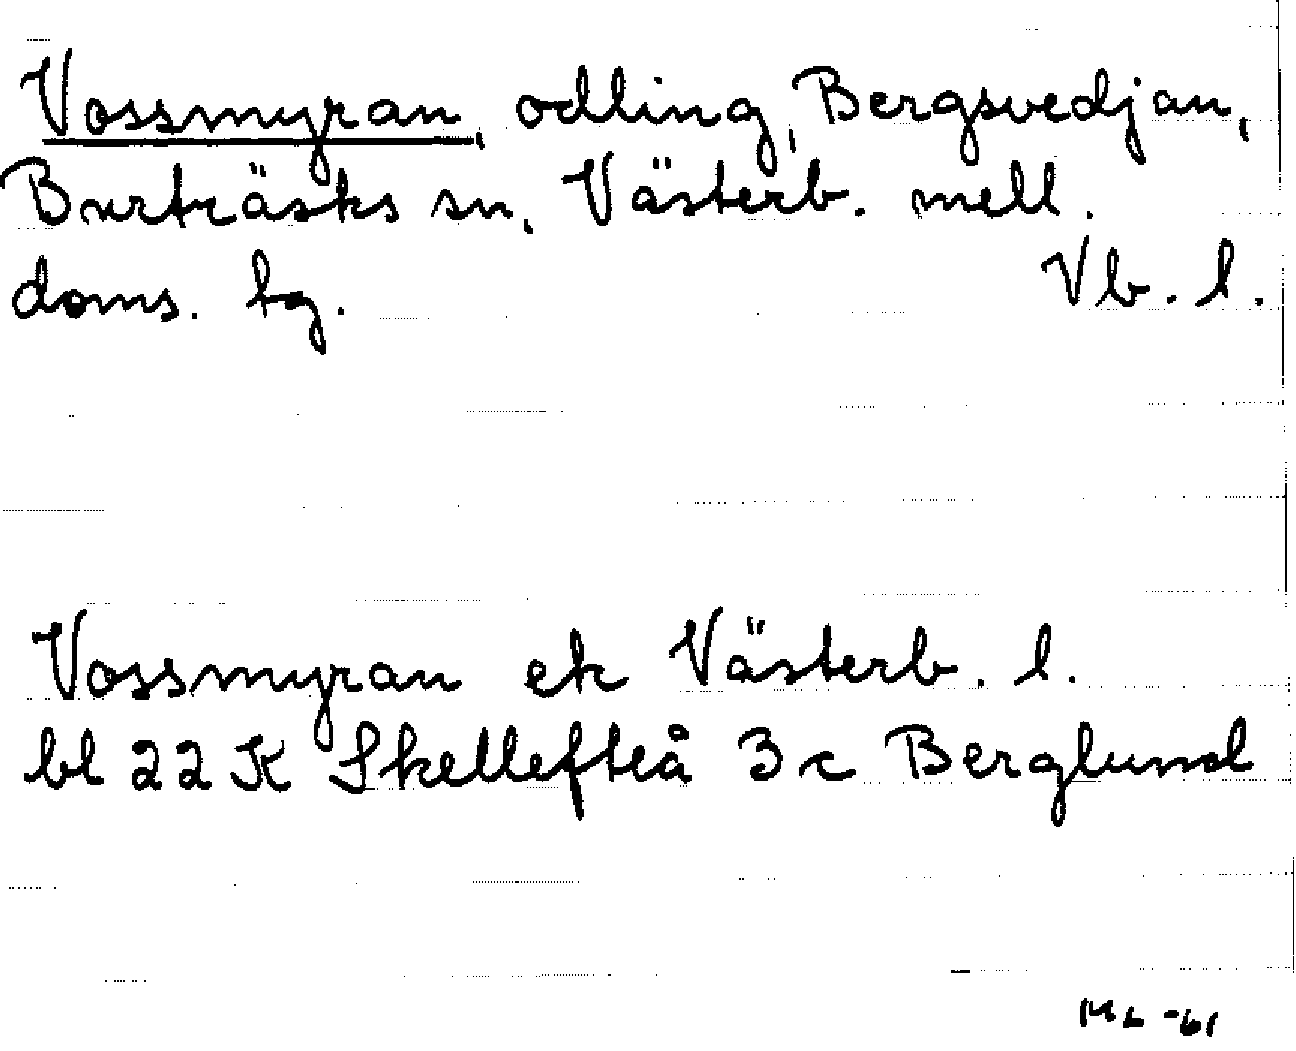 Vossmyran, odling, Bergsvedjan,
Burträsks sn, Västerb. mell.
doms. tg. Vb. l.
Vossmyran ek Västerb. l.
bl 22 K Skellefteå 3 c Berglund